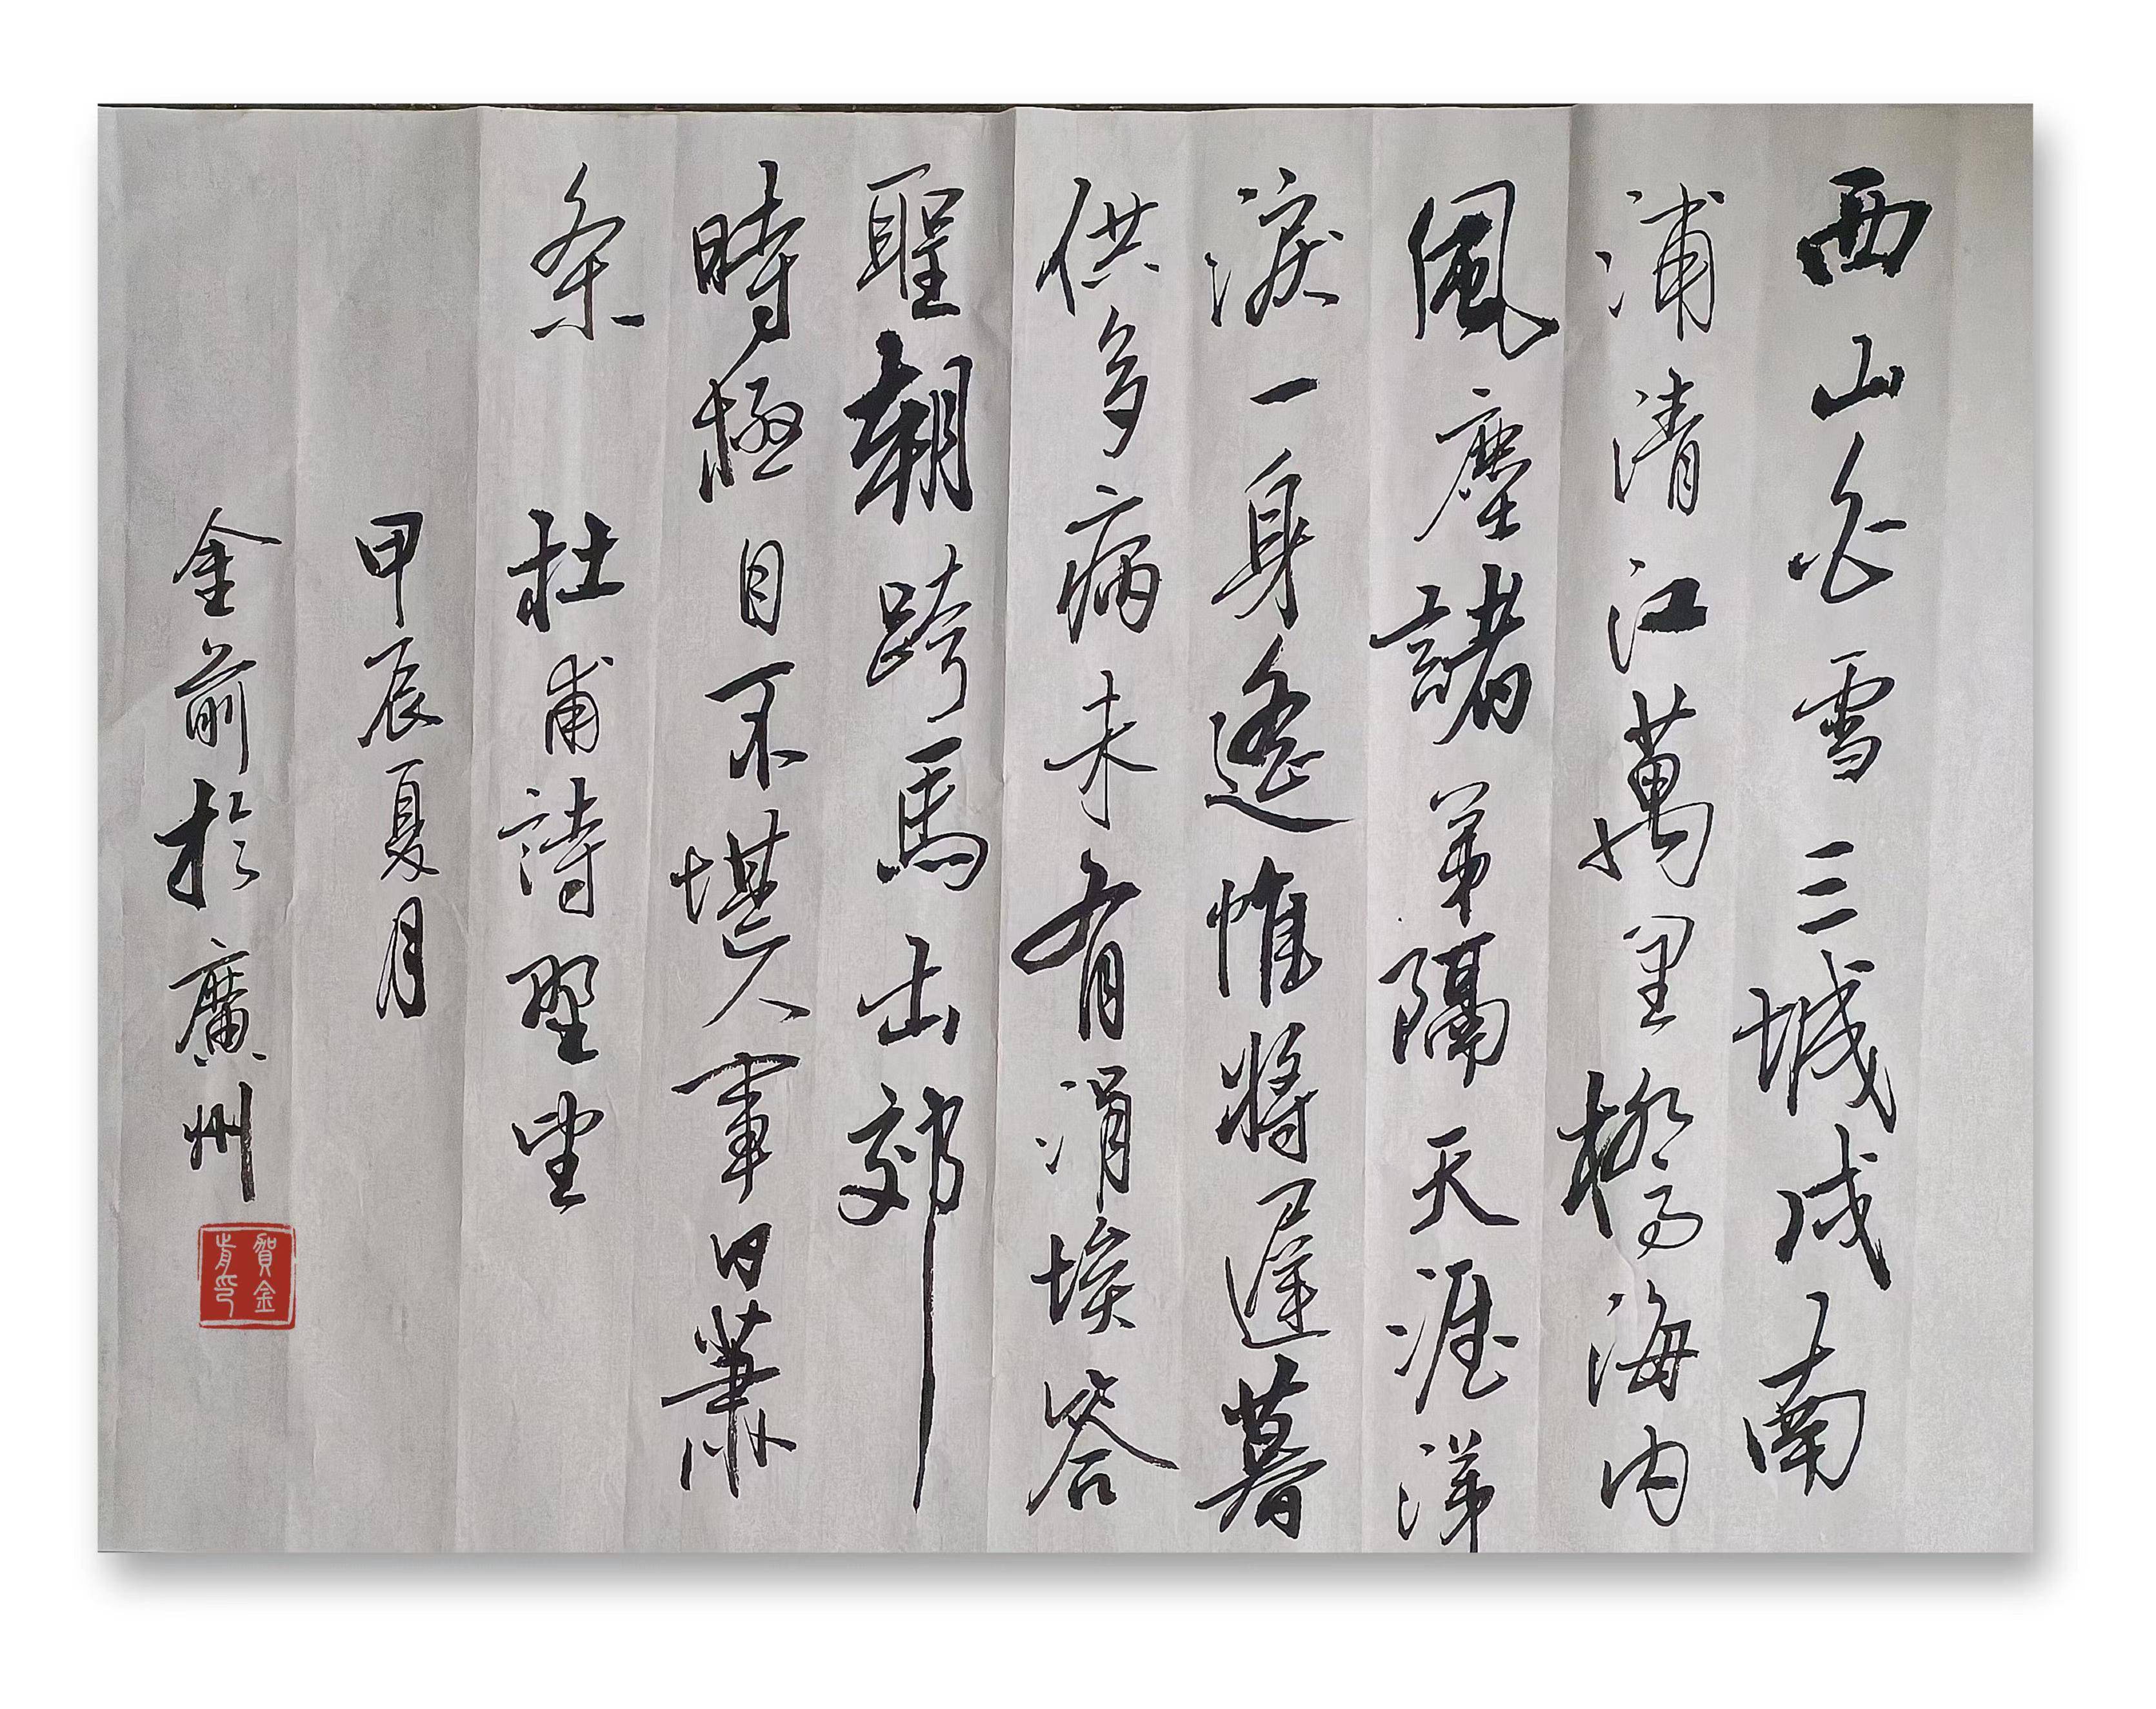 西山白雪三城戍南
浦清江萬里橋海内
風塵諸弟隔天涯涕
淚一身遙惟將遲暮
供多病未有涓埃答
聖朝跨馬出郊
時極目不堪人事日蕭
条 杜甫詩野望
甲辰夏月
金前於廣州
賀金
印